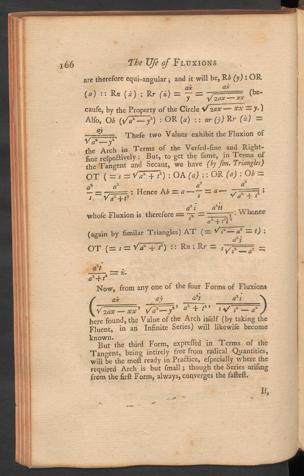 166 The Use of FLUXIONS
are therefore equi-angular; and it will be, Rb (y) : OR
(a) :: Rn (ẋ) : Rr (ż) = aẋ/y = aẋ/√2ax—xx (be-
cause, by the Property of the Circle √2ax — xx = y.)
Also, Ob (√a²—y²) : OR (a) :: nr (ẏ) Rr (ż) =
aẏ/√a²—y². These two Values exhibit the Fluxion of
the Arch in Terms of the Versed-sine and Right-
sine respectively: But, to get the same, in Terms of
the Tangent and Secant, we have (by sim. Triangles)
OT (= s = √a² + t²) : OA (a) :: OR (a) : Ob =
a²/s = a²/√a²+t²; Hence Ab = a — a²/s = a — a²/√a² + t²;
whose Fluxion is therefore = a²ṡ/s² = : Whence
(again by similar Triangles) AT (= √s² — a² = t) :
OT (= s = √a² + t²) :: Rn : Rr =
a²ṫ/a²+t² = ż.
Now, from any one of the four Forms of Fluxions
(aẋ/√2ax — xx, aẏ/√a² — y², a²ṫ/a² + t², a²ṡ/s√s² — a²)
here found, the Value of the Arch itself (by taking the
Fluent, in an Infinite Series) will likewise become
known.
But the third Form, expressed in Terms of the
Tangent, being intirely free from radical Quantities,
will be the most ready in Practice, especially where the
required Arch is but small; though the Series arising
from the first Form, always, converges the fastest.
If,